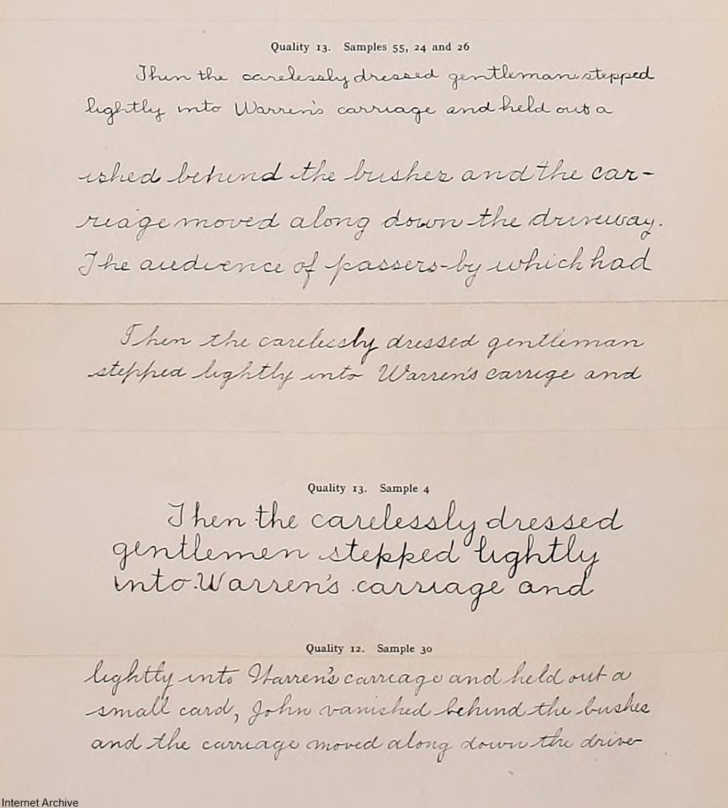 Quality 13. Samples 55, 24 and 26
Then the carelessly dressed gentleman stepped
lightly into Warren's carriage and held out a
ished behind the bushes and the car-
riage moved along down the driveway.
The audience of passers-by which had
Then the carelessly dressed gentleman
stepped lightly into Warren's carrige and
Quality 13. Sample 4
Then the carelessly dressed
gentlemen stepped lightly
into Warren's carriage and
Quality 12. Sample 30
lightly into Warren's carriage and held out a
small card, John vanished behind the bushes
and the carriage moved along down the drive-
Internet Archive